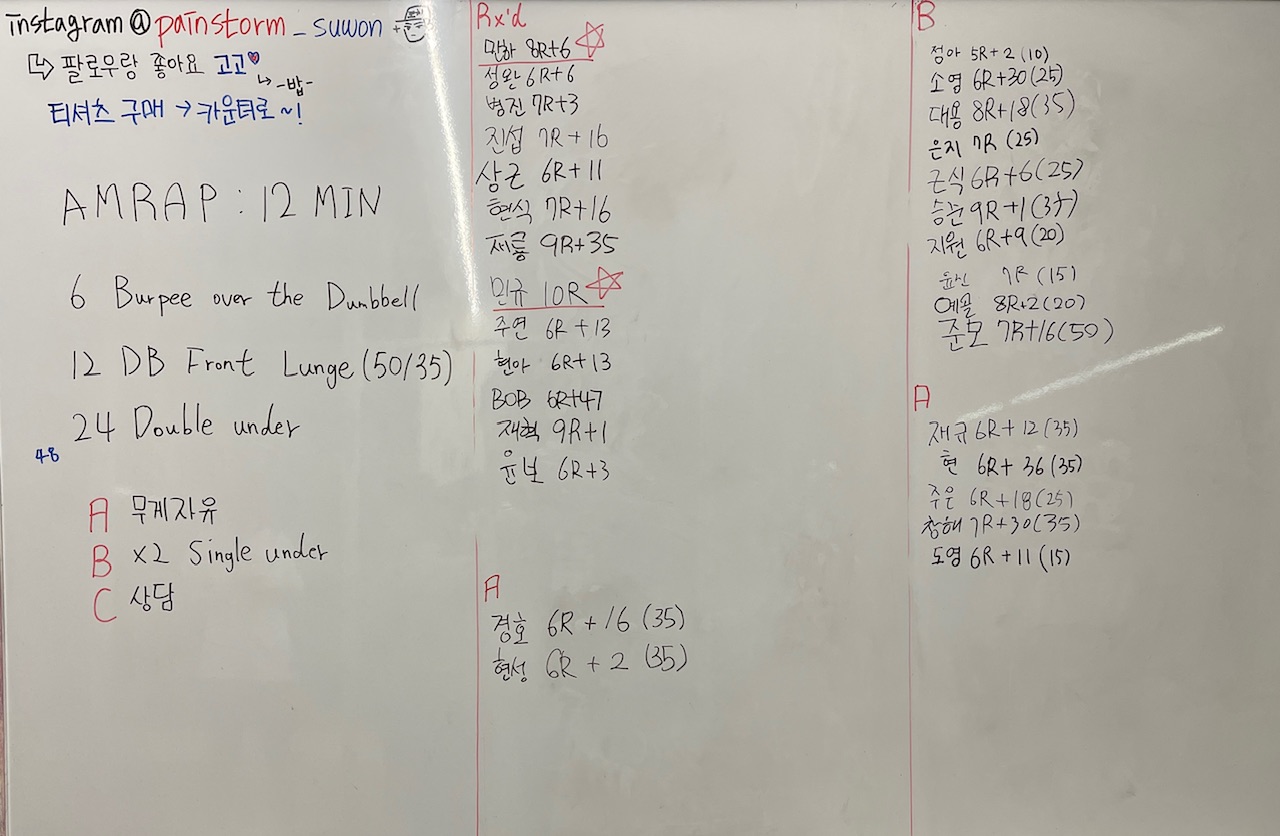 instagram@painstorm_suwon
↳ 팔로우랑 좋아요 고고♥
↳ -밥-
티셔츠 구매 → 카운터로~!
AMRAP : 12 MIN
6 Burpee over the Dumbbell
12 DB Front Lunge (50/35)
24 Double under
48
A 무게자유
B x2 Single under
C 상담
Rx'd
민하 8R+6 ☆
성완 6R+6
병진 7R+3
진섭 7R+16
상근 6R+11
현식 7R+16
재룡 9R+35
민규 10R ☆
주연 6R+13
현아 6R+13
BOB 6R+47
재혁 9R+1
윤보 6R+3
A
경호 6R+16 (35)
현성 6R+2 (35)
B
정아 5R+2 (10)
소영 6R+30 (25)
대용 8R+18 (35)
은지 7R (25)
근식 6R+6 (25)
승훈 9R+1
지원 6R+9 (20)
7R (15)
예꼴 8R+2 (20)
준모 7R+16 (50)
A
재규 6R+12 (35)
현 6R+36 (35)
주은 6R+18 (25)
창해 7R+30 (35)
도영 6R+11 (15)